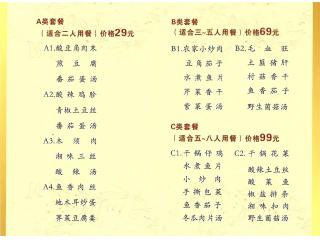 A类套餐
（适合二人用餐）价格29元
A1.酸豆角肉末
煎豆腐
番茄蛋汤
A2.酸辣鸡胗
青椒土豆丝
番茄蛋汤
A3.木须肉
湘味三丝
酸辣汤
A4.鱼香肉丝
地木耳炒蛋
荠菜豆腐羹
B类套餐
（适合三~五人用餐）价格69元
B1.农家小炒肉
豆角茄子
水煮鱼片
芹菜香干
紫菜蛋汤
B2.毛血旺
土匪猪肝
村菇香干
鱼香茄子
野生菌菇汤
C类套餐
（适合五~八人用餐）价格99元
C1.干锅仔鸡
水煮鱼片
小炒肉
手撕包菜
鱼香茄子
冬瓜肉片汤
C2.干锅花菜
酸辣土豆丝
酸菜鱼
椒盐排条
湘味扣肉
野生菌菇汤